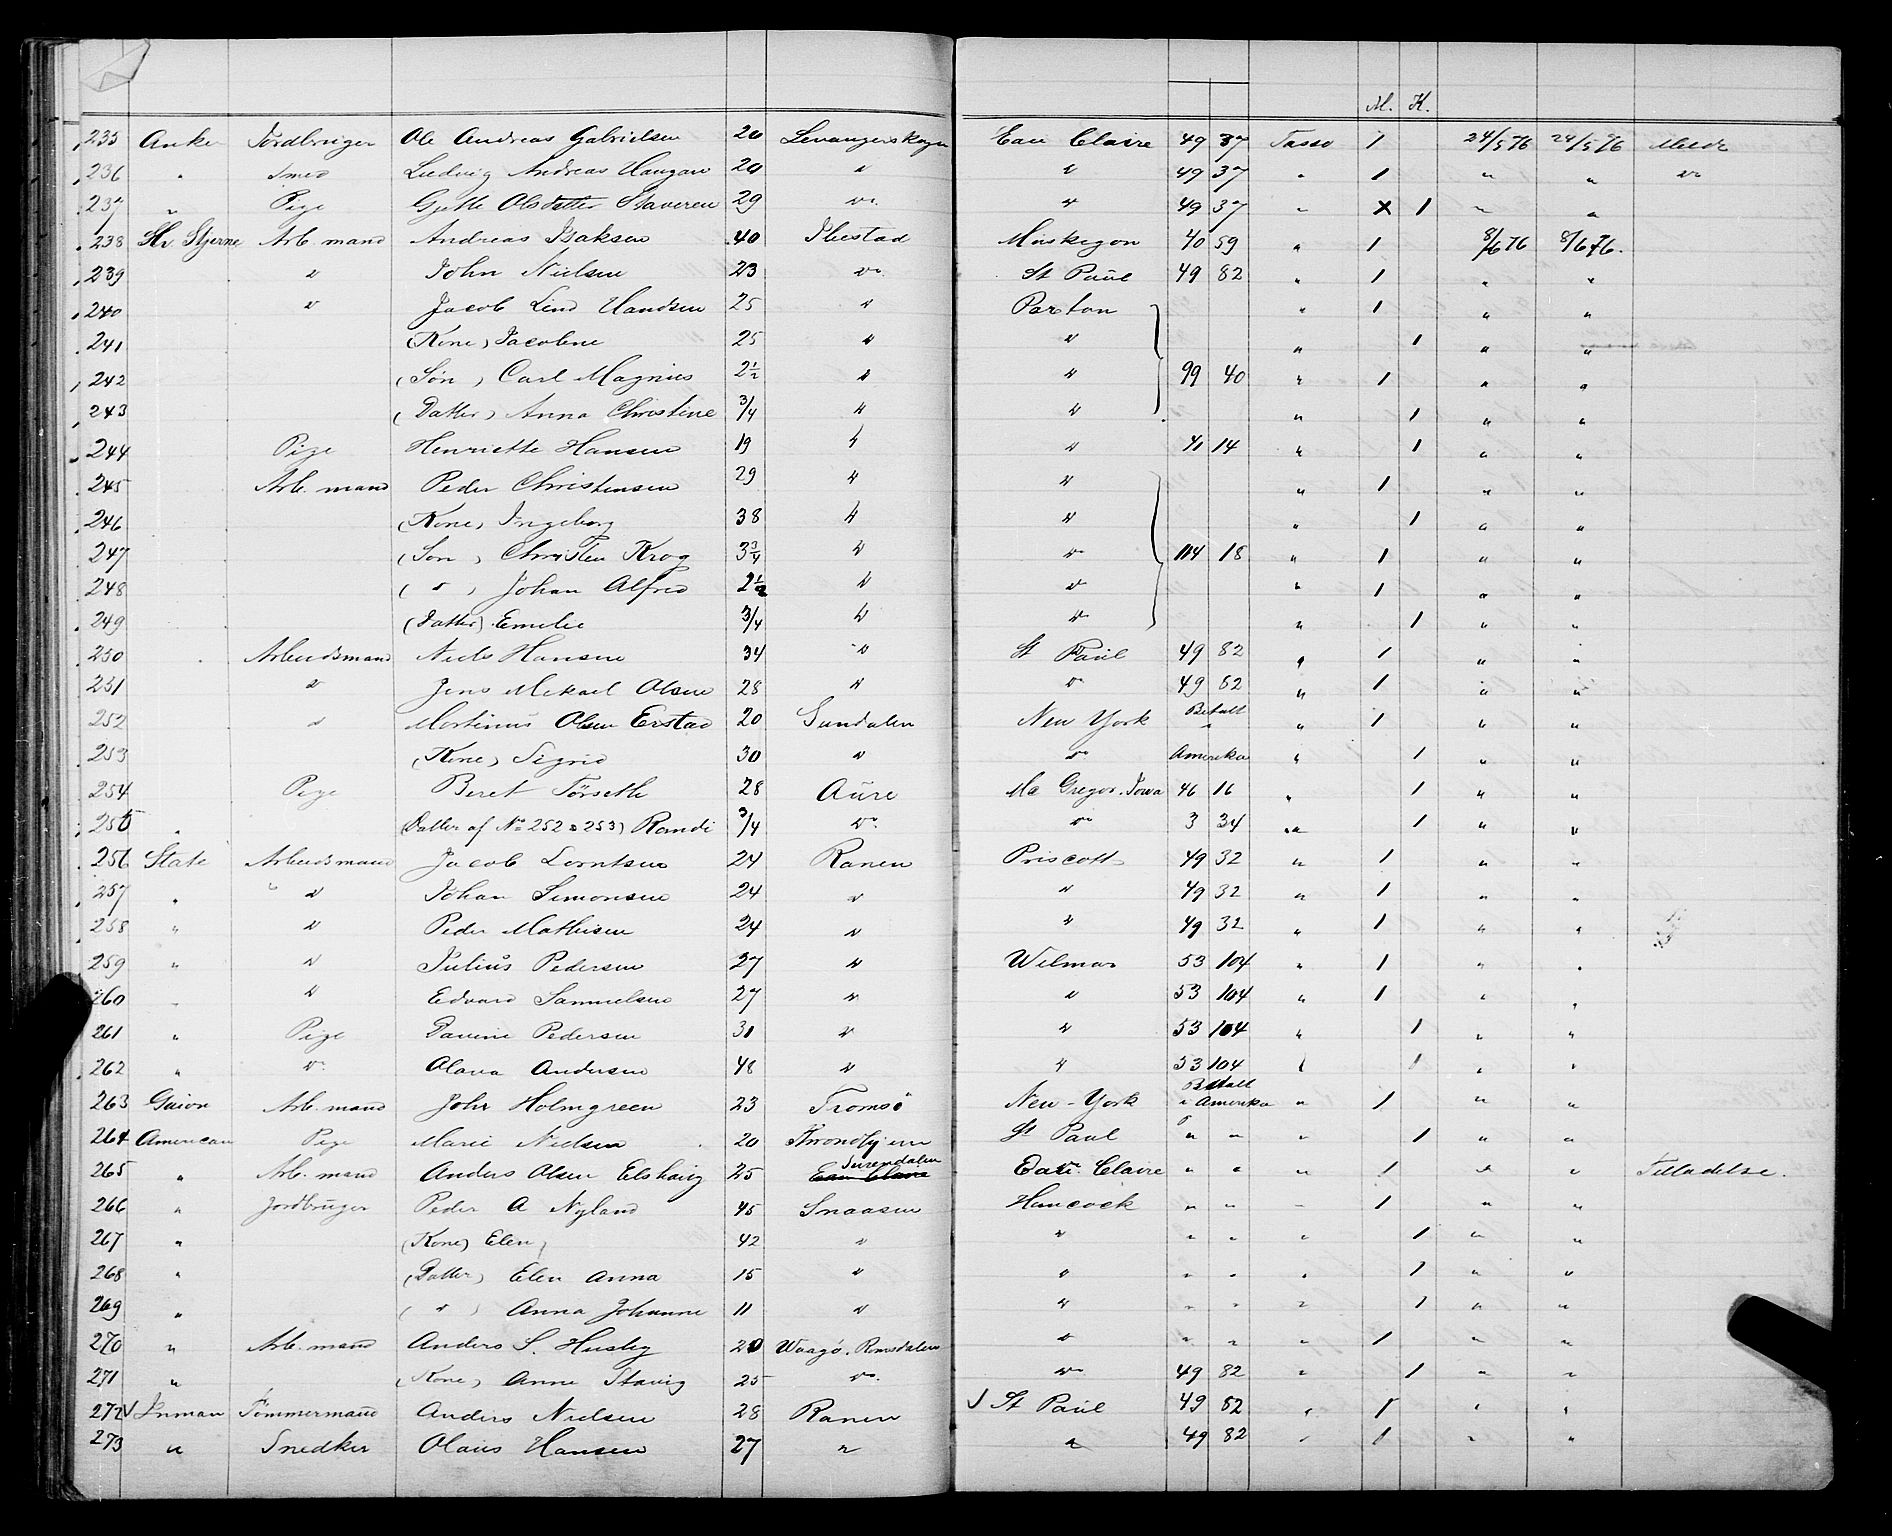 M. K.
235 Anker Jordbruger Ole Andreas Gabrielsen 20 Levangerskogn Eau Claire 49 37 Tasso 1 24/5 76 24/5 76
236 " Smed Ludvig Andreas Haugan 20 " " 49 37 " 1 " "
237 " Pige Olsdatter Staveren 29 do " 49 37 " x 1 " "
238 Hv. Stjerne Arb. mand Andreas Isaksen 40 Ibestad Muskegon 40 59 " 1 8/6 76 8/6 76.
239 " John Nielsen 23 do St Paul 49 82 " 1 " "
240 " Jacob Lind Handsen 25 " Paxton " 1 " "
241 (Kone) Jacobine 25 " " " 1 " "
242 (Søn) Carl Magnus 2 1/2 " " 99 40 " 1 " "
243 (Datter) Anna Christine 3/4 " " " 1 " "
244 Pige Henriette Hansen 19 " " 41 14 " 1 " "
245 Arb. mand Peder Christensen 29 " " " 1 " "
246 (Kone) Ingeborg 38 " " " 1 " "
247 (Søn) Christen Krog 3 3/4 " " 114 18 " 1 " "
248 ( " ) Johan Alfred 2 1/2 " " " 1 " "
249 (Datter) Emelie 3/4 " " " 1 " "
250 Arbeidsmand Niels Hansen 34 " St Paul 49 82 " 1 " "
251 " Jens Mekael Olsen 28 " " 49 82 " 1 " "
252 " Mortinus Olsen Erstad 20 Sundalen New York Betalt i " 1 " "
253 (Kone) Sigrid 30 " " Amerika " 1 " "
254 Pige Beret Törseth 28 Aure Mc Gregor. Iowa 46 16 " 1 " "
255 " (Datter af No 252 & 253) Randi 3/4 do " 3 34 " 1 " "
256 State Arbeidsmand Jacob Lorntsen 24 Ranen Priscott 49 32 " 1 " "
257 " " Johan Simonsen 24 " " 49 32 " 1 " "
258 " " Peder Mathisen 24 " " 49 32 " 1 " "
259 " " Julius Pedersen 27 " Wilmar 53 104 " 1 " "
260 " " Edvard Samuelsen 27 " " 53 104 " 1 " "
261 " Pige Pedersen 31 " " 53 104 " 1 " "
262 " do Olava Andersen 48 " " 53 104 " 1 " "
263 Guion Arb. mand John Holmgreen 23 Tromsö New-York Betalt i Amerika " 1 " "
264 American Pige Marie Nielsen 20 Throndhjem St Paul " " " 1 " "
265 " Arb. mand Anders Olsen 25 Eau Claire Surendalen Eau Claire " " " 1 " " Tilladelse.
266 " Jordbruger Peder A Nyland 45 Snaasen Hancock " " " 1 " "
267 " (Kone) Elen 42 " " " " " 1 " "
268 " (Datter) Elen Anna 15 " " " " " 1 " "
269 " ( " ) Anna Johanne 11 " " " " " 1 " "
270 " Arb. mand Anders S. Husby 20 Waagö. Romsdalen " " " " 1 " "
271 " (Kone) Anne Stavig 25 do " 49 82 " 1 " "
272 √ Inman Tömmermand Anders Nielsen 28 Ranen √ St Paul 49 82 " 1 " "
273 " Snedker Olaus Hansen 27 " " 49 82 " 1 " "